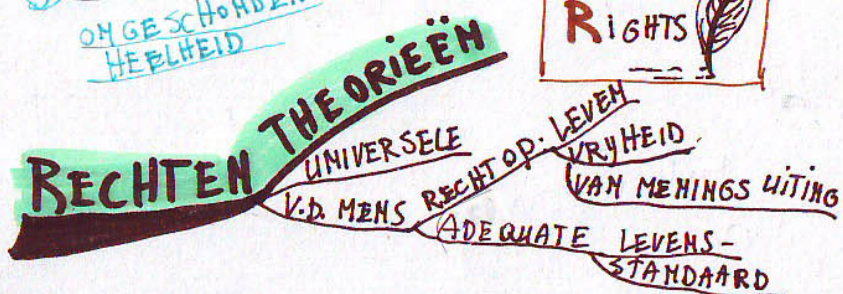 ONGESCHONDEN
HEELHEID
RIGHTS
RECHTEN THEORIEËN
UNIVERSELE
V.D. MENS
RECHT OP: LEVEN
VRYHEID
VAN MENINGS UITING
ADEQUATE LEVENS-
STANDAARD